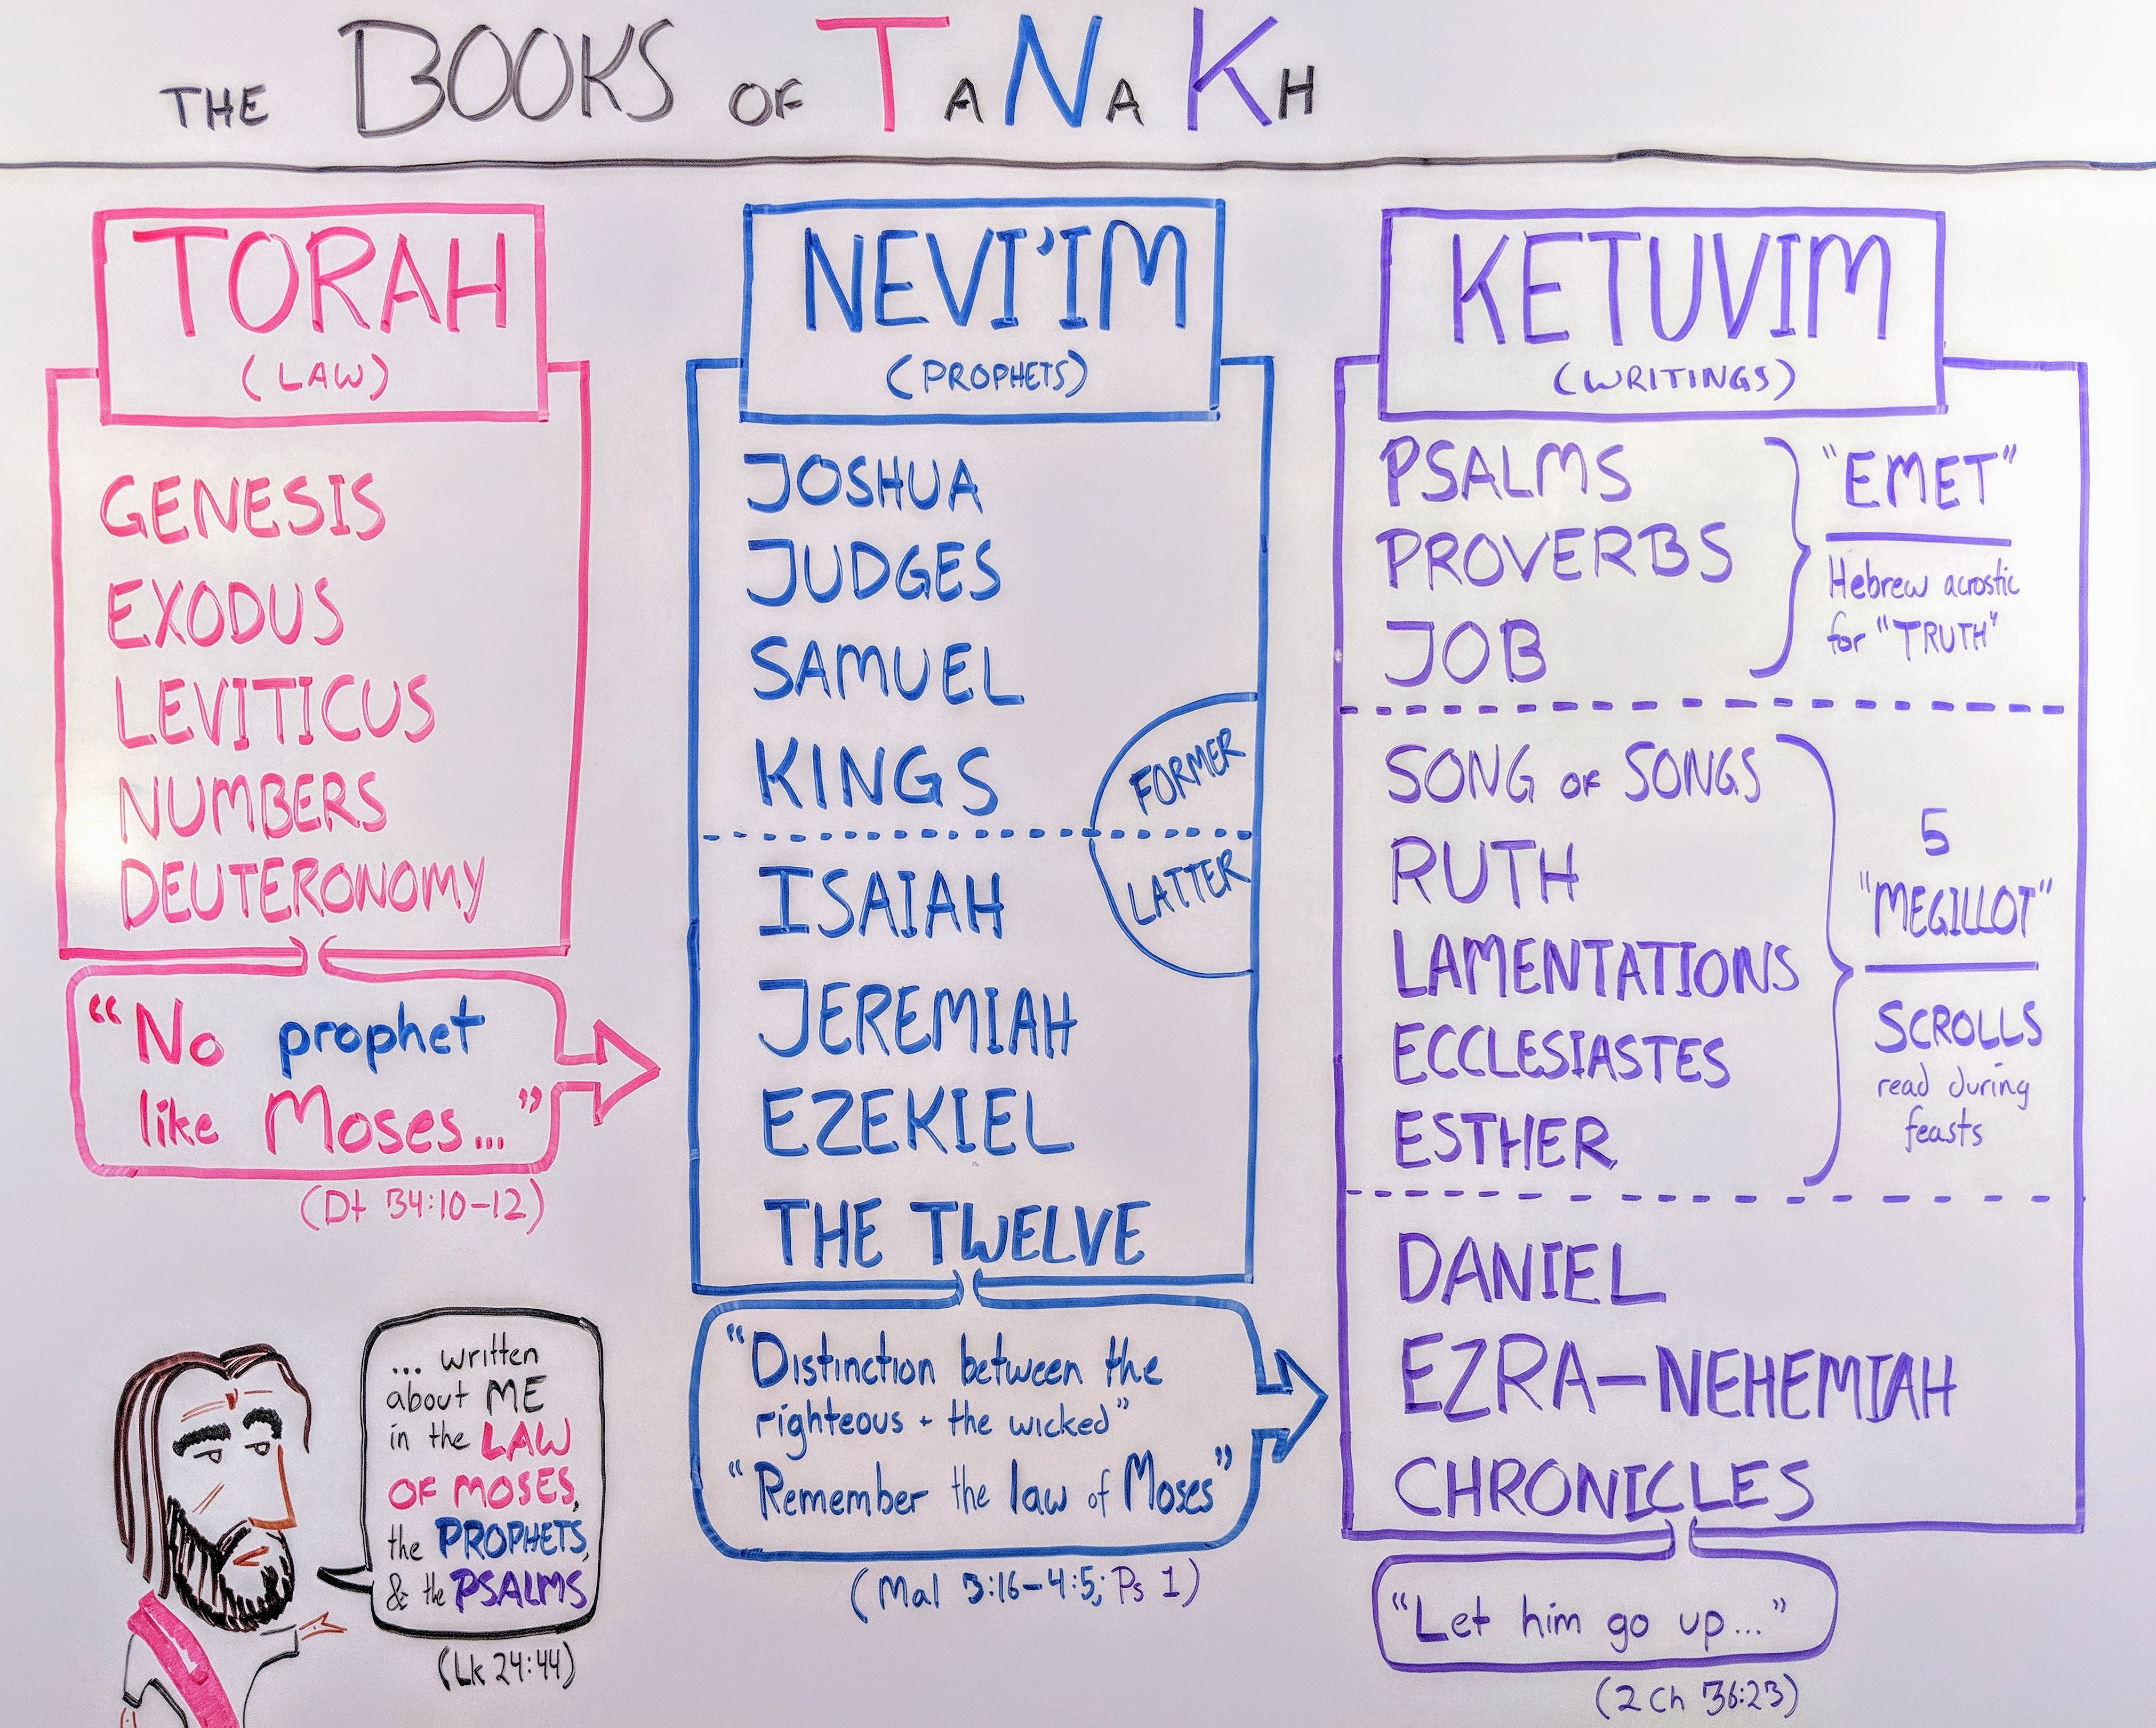 THE BOOKS OF TANAKH
TORAH
(LAW)
GENESIS
EXODUS
LEVITICUS
NUMBERS
DEUTERONOMY
"No prophet
like Moses..."
(Dt 34:10-12)
... written
about ME
in the LAW
OF MOSES,
the PROPHETS,
& the PSALMS
(Lk 24:44)
NEVI'IM
(PROPHETS)
JOSHUA
JUDGES
SAMUEL
KINGS
FORMER
LATTER
ISAIAH
JEREMIAH
EZEKIEL
THE TWELVE
"Distinction between the
righteous + the wicked"
"Remember the law of Moses"
(Mal 3:16-4:5; Ps 1)
KETUVIM
(WRITINGS)
PSALMS
PROVERBS
JOB
"EMET"
Hebrew acrostic
for "TRUTH"
SONG OF SONGS
RUTH
LAMENTATIONS
ECCLESIASTES
ESTHER
5
"MEGILLOT"
SCROLLS
read during
feasts
DANIEL
EZRA-NEHEMIAH
CHRONICLES
"Let him go up..."
(2 Ch 36:23)